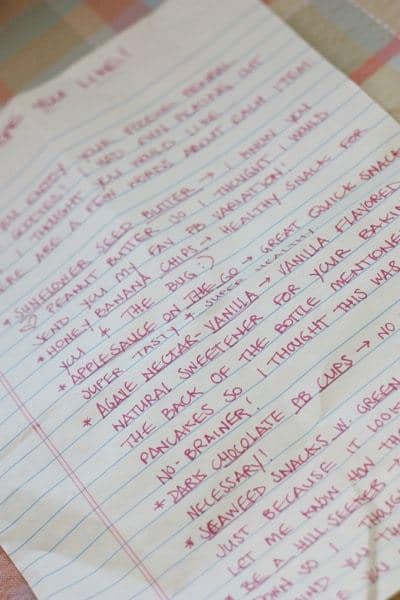 YOU LIKE!
ENJOY YOUR FOODIE PENPAL
GOODIES! I HAD FUN PICKING OUT
I THOUGHT YOU WOULD LIKE.
HERE ARE A FEW WORDS ABOUT EACH ITEM!
* SUNFLOWER SEED BUTTER → I KNOW YOU
♡ PEANUT BUTTER SO I THOUGHT I WOULD
SEND YOU MY FAV PB VARIATION!
* HONEY BANANA CHIPS → HEALTHY SNACK FOR
YOU & THE BUG! :)
* APPLESAUCE ON THE GO → GREAT QUICK SNACK
SUPER TASTY + SUPER HEALTHY
* AGAVE NECTAR VANILLA → VANILLA FLAVORED
NATURAL SWEETENER FOR YOUR BAKING
THE BACK OF THE BOTTLE MENTIONED
PANCAKES SO I THOUGHT THIS WAS
NO-BRAINER!
* DARK CHOCOLATE PB CUPS → NO
NECESSARY!
* SEAWEED SNACKS W/ GREEN
JUST BECAUSE IT LOOK
LET ME KNOW HOW TH
* BE A HILLSEEKER →
SO I THOUGH
YOU